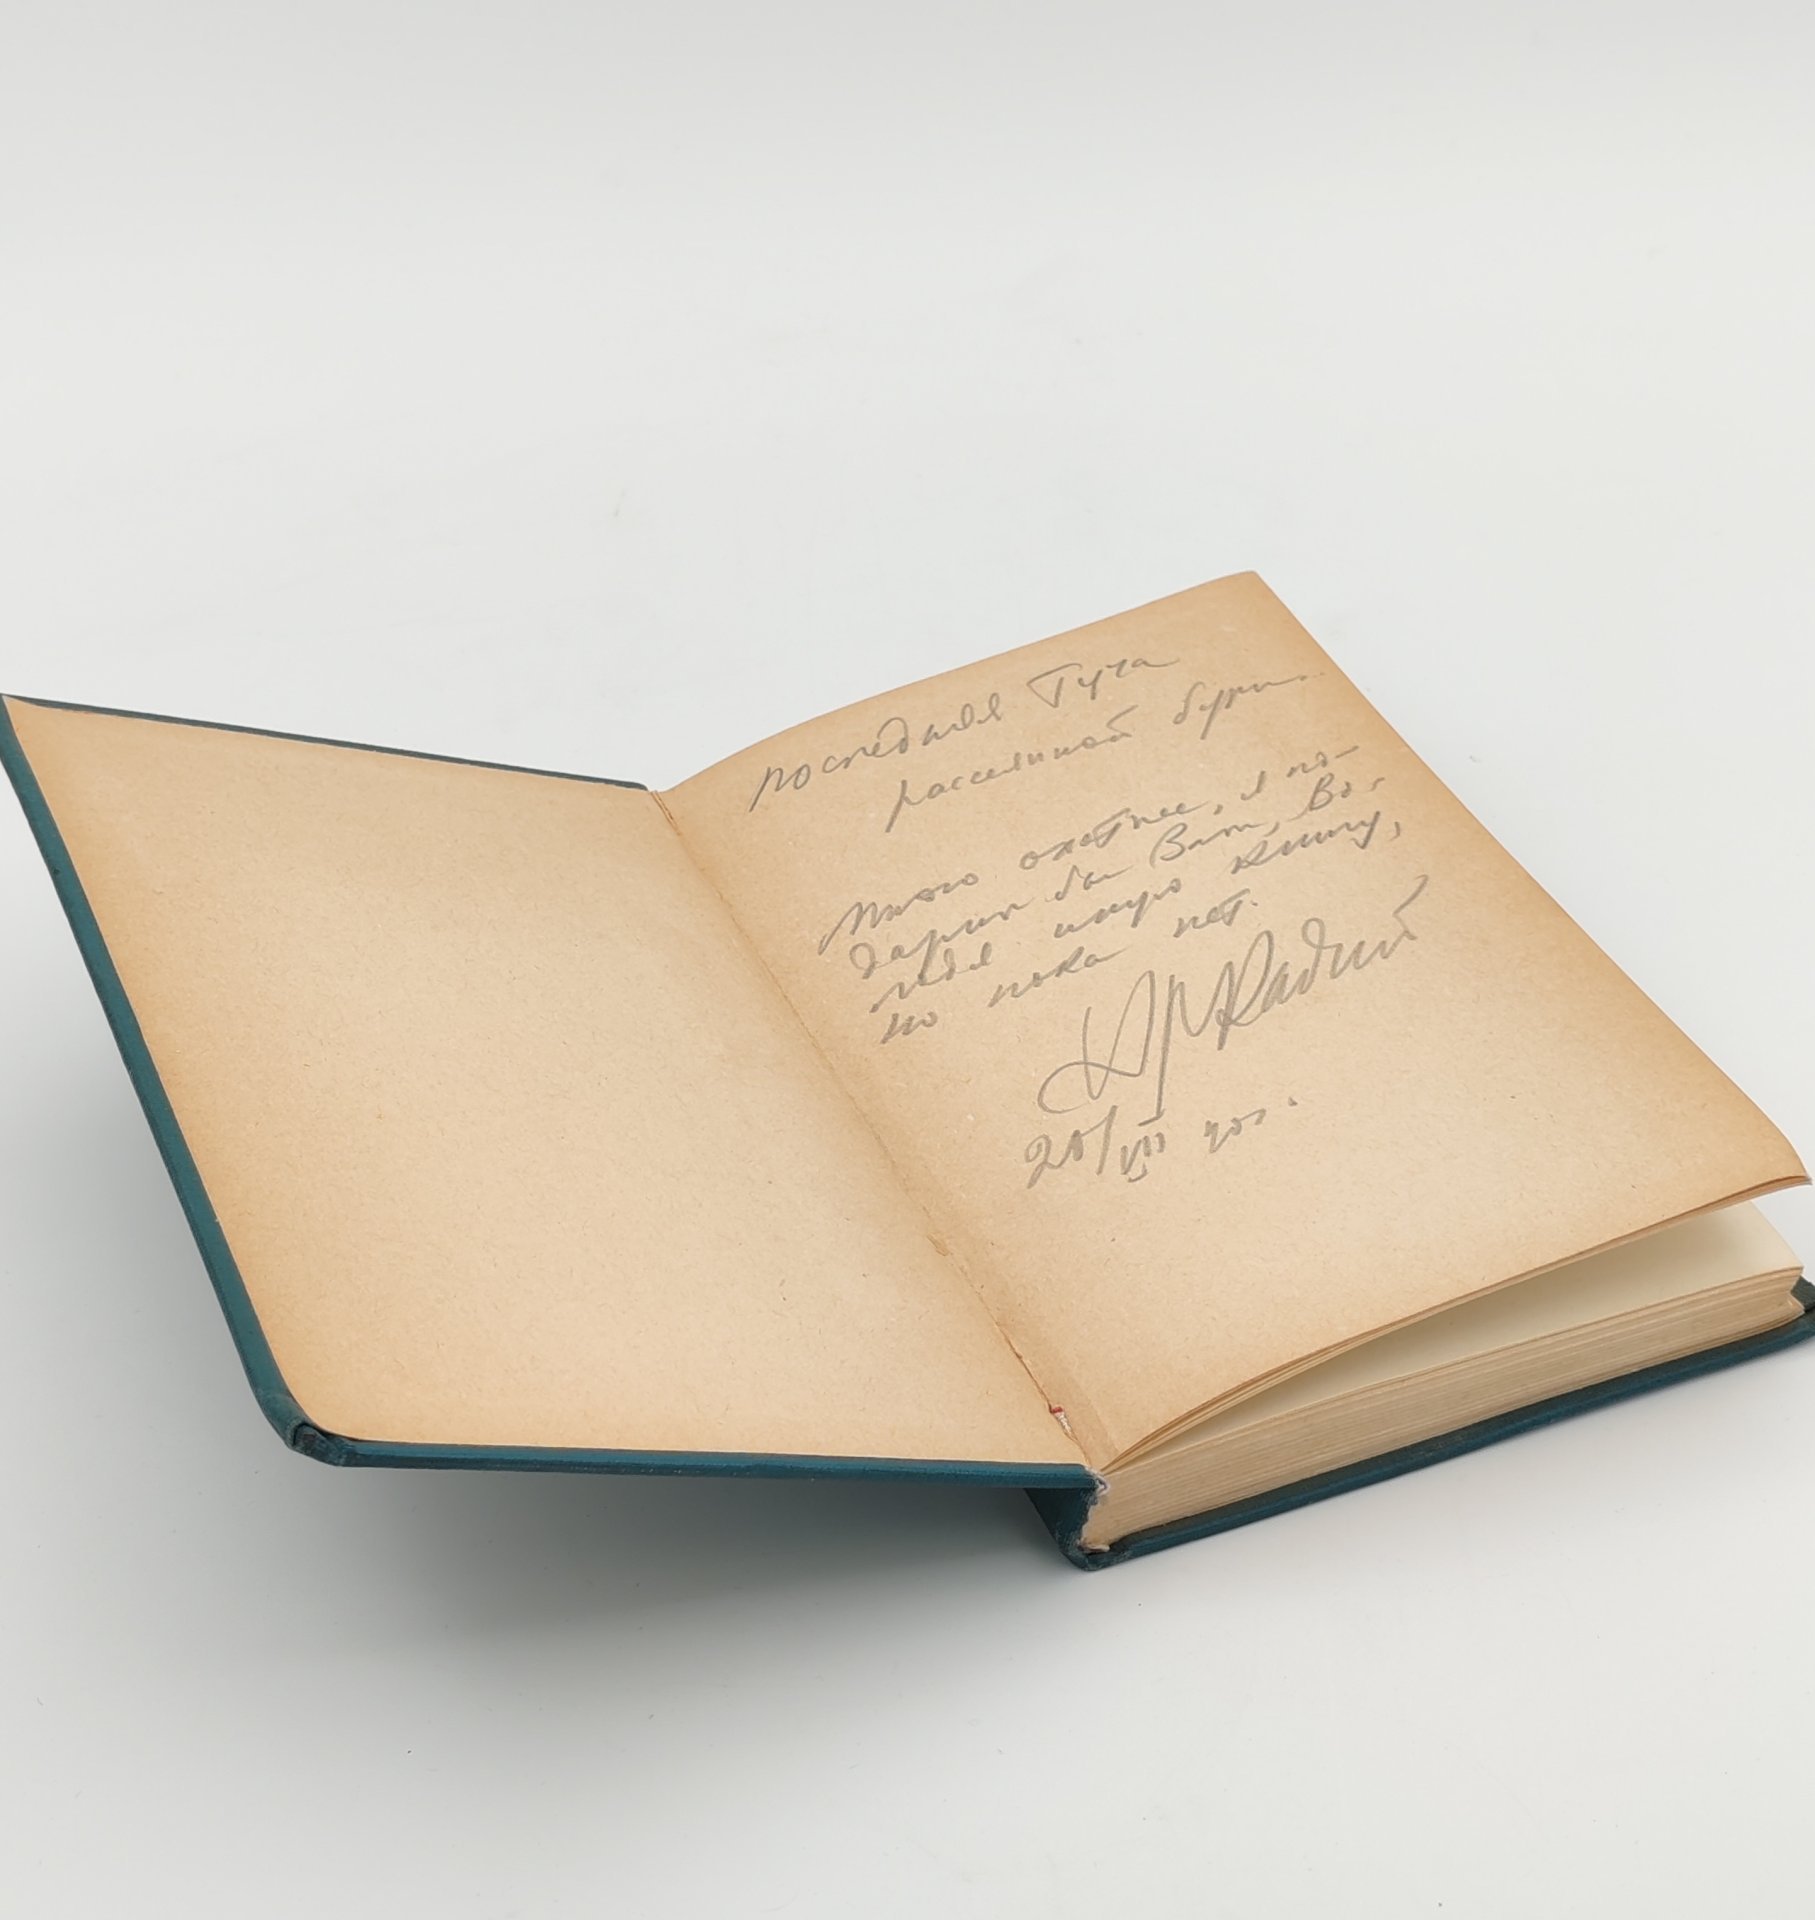 последняя туча
рассеянной бури...
Много охотнее, я по-
дарил бы Вам, Во-
лодя иную книгу,
но пока нет.
Аркадий
20/VIII 40г.